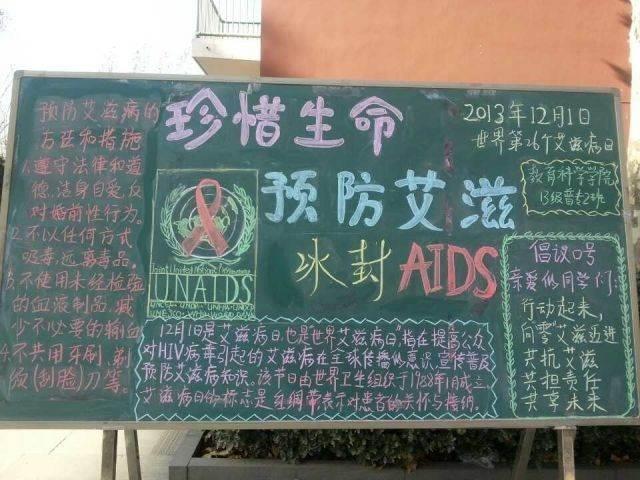 预防艾滋病的
方法和措施
1.遵守法律和道
德,洁身自爱,反
对婚前性行为。
2.不以任何方式
吸毒,远离毒品。
3.不使用未经检验
的血液制品,减
少不必要的输血
4.不共用牙刷,剃
须(刮脸)刀等。
珍惜生命
预防艾滋
冰封AIDS
UNAIDS
2013年12月1日
世界第26个艾滋病日
教育科学学院
13级普2班
12月1日是艾滋病日,也是世界艾滋病日"指在提高公众
对HIV病毒引起的艾滋病在全球传播的意识,宣传普及
预防艾滋病知识。该节日由世界卫生组织于1988年1月成立
艾滋病日的标志是红绸带表示对患者的关怀与接纳。
倡议口号
亲爱的同学们:
行动起来,
向"零"艾滋迈进
共抗艾滋
共担责任
共享未来